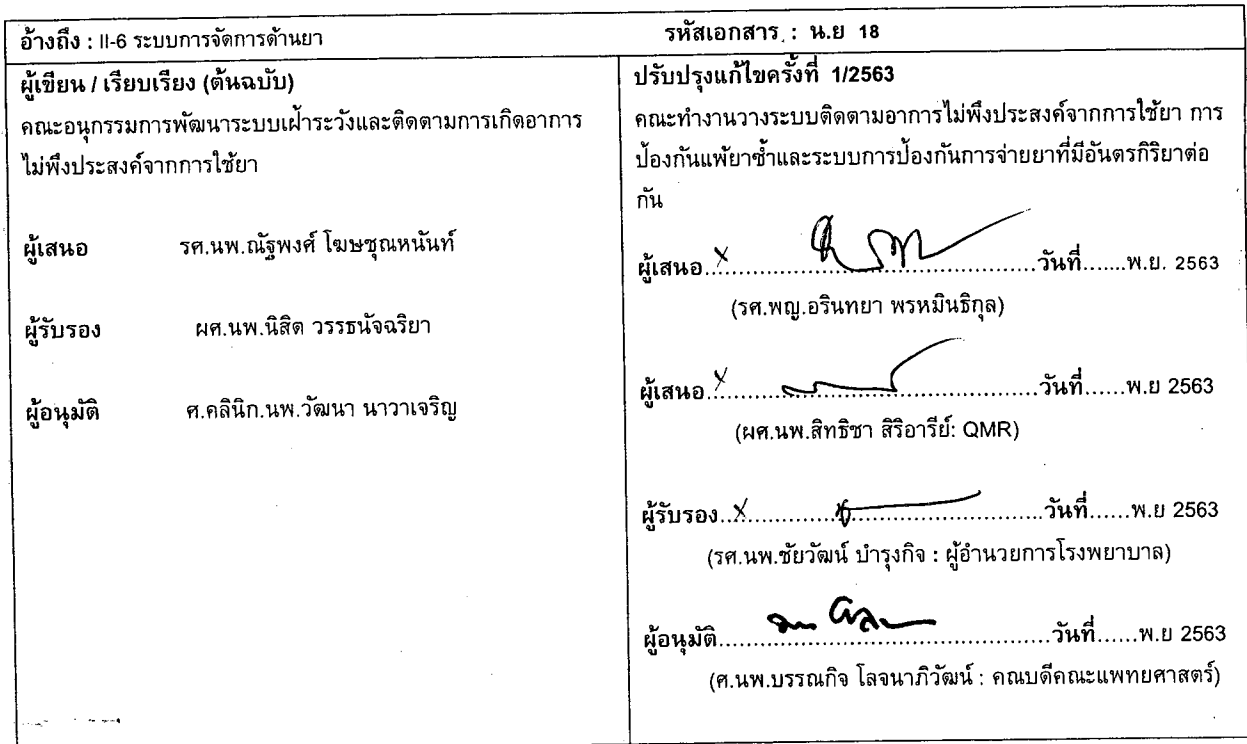 อ้างถึง : II-6 ระบบการจัดการด้านยา
รหัสเอกสาร : น.ย 18
ผู้เขียน / เรียบเรียง (ต้นฉบับ)
คณะอนุกรรมการพัฒนาระบบเฝ้าระวังและติดตามการเกิดอาการ
ไม่พึงประสงค์จากการใช้ยา
ผู้เสนอ รศ.นพ.ณัฐพงศ์ โฆษชุณหนันท์
ผู้รับรอง ผศ.นพ.นิสิต วรรธนัจฉริยา
ผู้อนุมัติ ศ.คลินิก.นพ.วัฒนา นาวาเจริญ
ปรับปรุงแก้ไขครั้งที่ 1/2563
คณะทำงานวางระบบติดตามอาการไม่พึงประสงค์จากการใช้ยา การ
ป้องกันแพ้ยาซ้ำและระบบการป้องกันการจ่ายยาที่มีอันตรกิริยาต่อ
กัน
ผู้เสนอ X ........ วันที่.......พ.ย. 2563
(รศ.พญ.อรินทยา พรหมินธิกุล)
ผู้เสนอ X ........ วันที่......พ.ย 2563
(ผศ.นพ.สิทธิชา สิริอารีย์: QMR)
ผู้รับรอง...X........ วันที่......พ.ย 2563
(รศ.นพ.ชัยวัฒน์ บำรุงกิจ : ผู้อำนวยการโรงพยาบาล)
ผู้อนุมัติ........ วันที่......พ.ย 2563
(ศ.นพ.บรรณกิจ โลจนาภิวัฒน์ : คณบดีคณะแพทยศาสตร์)